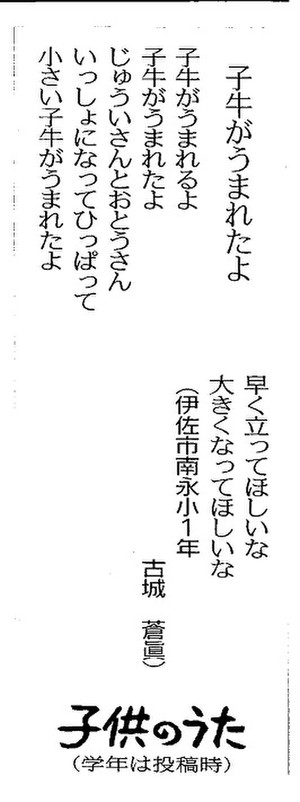 子牛がうまれたよ
子牛がうまれるよ
子牛がうまれたよ
じゅういさんとおとうさん
いっしょになってひっぱって
小さい子牛がうまれたよ
早く立ってほしいな
大きくなってほしいな
(伊佐市南永小1年
古城 蒼眞)
子供のうた
(学年は投稿時)